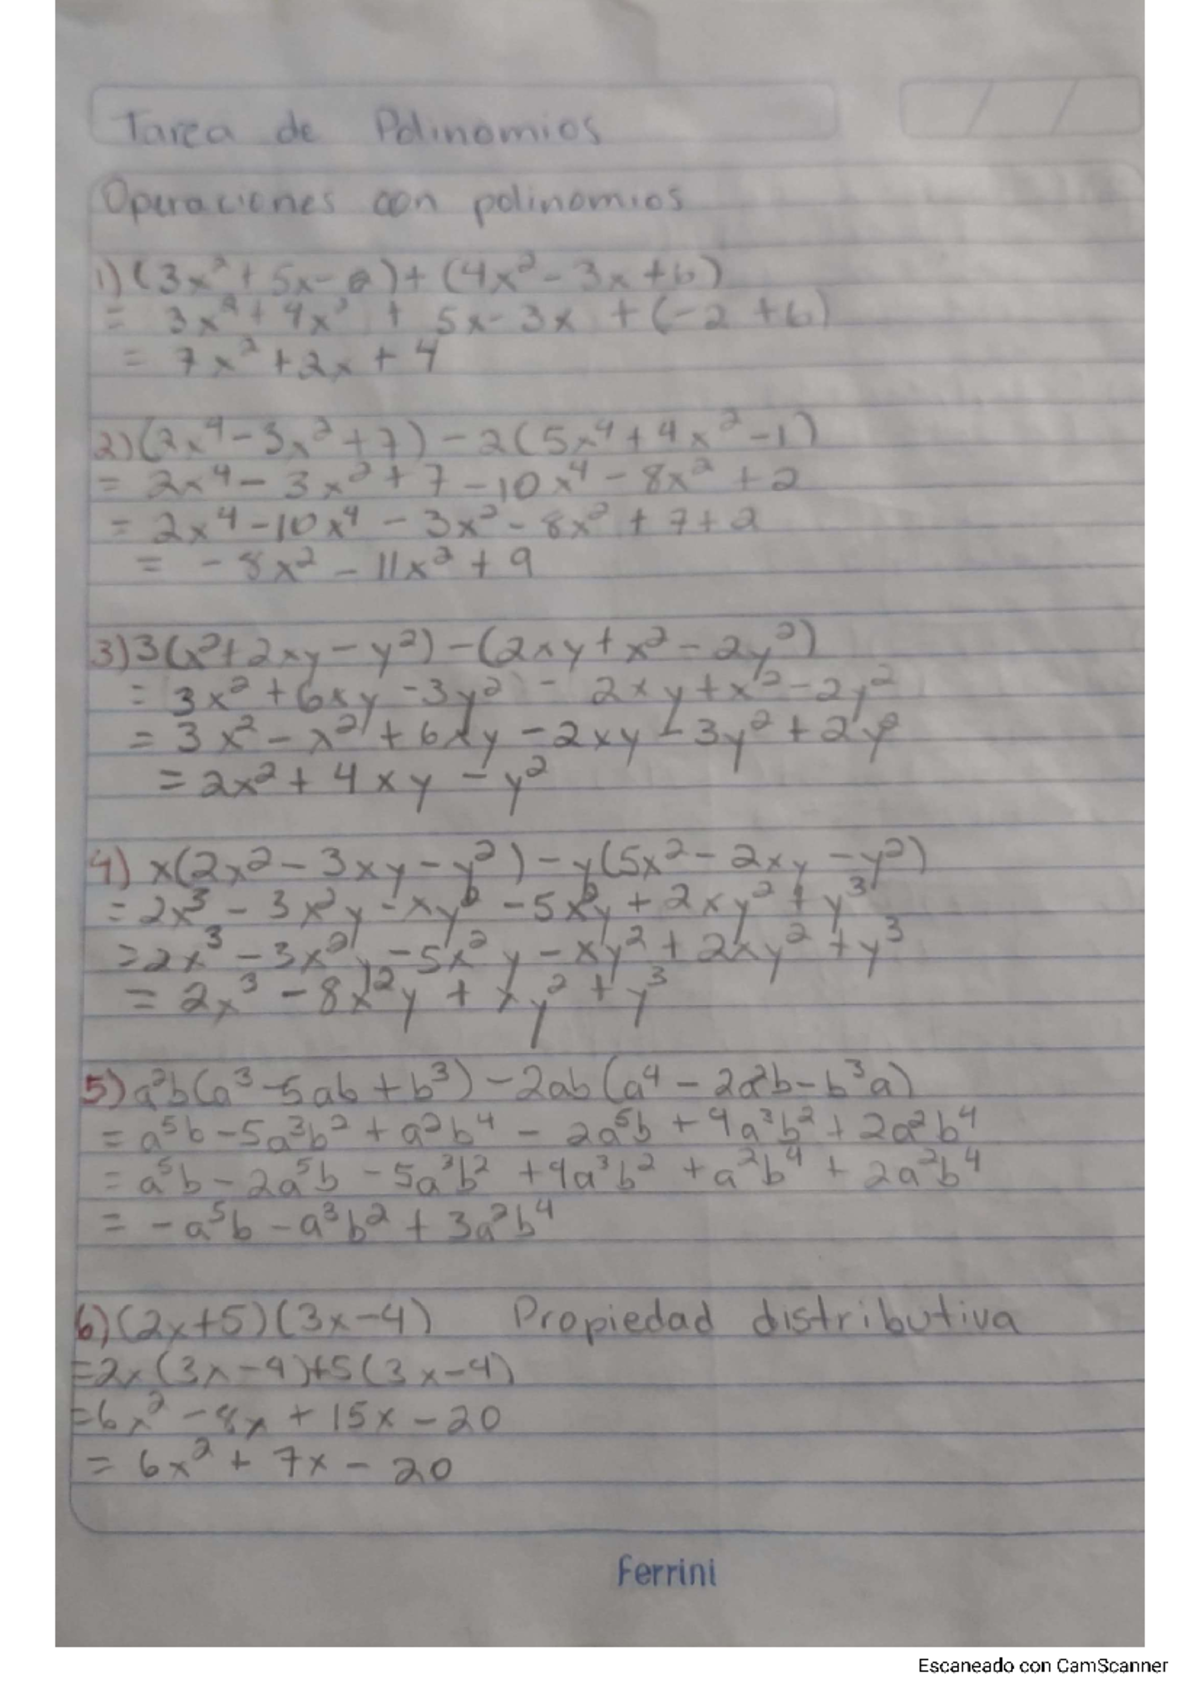 Tarea de Polinomios
Operaciones con polinomios
1) (3x² + 5x - 2) + (4x² - 3x + 6)
= 3x² + 4x² + 5x - 3x + (-2 + 6)
= 7x² + 2x + 4
2) (2x⁴ - 3x² + 7) - 2(5x⁴ + 4x² - 1)
= 2x⁴ - 3x² + 7 - 10x⁴ - 8x² + 2
= 2x⁴ - 10x⁴ - 3x² - 8x² + 7 + 2
= - 8x² - 11x² + 9
3) 3(x² + 2xy - y²) - (2xy + x² - 2y²)
= 3x² + 6xy - 3y² - 2xy + x² - 2y²
= 3x² - x² + 6xy - 2xy - 3y² + 2y²
= 2x² + 4xy - y²
4) x(2x² - 3xy - y²) - y(5x² - 2xy - y²)
= 2x³ - 3x²y - xy² - 5x²y + 2xy² + y³
= 2x³ - 3x²y - 5x²y - xy² + 2xy² + y³
= 2x³ - 8x²y + xy² + y³
5) a²b(a³ - 5ab + b³) - 2ab(a⁴ - 2a²b - b³a)
= a⁵b - 5a³b² + a²b⁴ - 2a⁵b + 4a³b² + 2a²b⁴
= a⁵b - 2a⁵b - 5a³b² + 4a³b² + a²b⁴ + 2a²b⁴
= - a⁵b - a³b² + 3a²b⁴
6) (2x+5)(3x-4) Propiedad distributiva
= 2x(3x-4)+5(3x-4)
= 6x² - 8x + 15x - 20
= 6x² + 7x - 20
Ferrini
Escaneado con CamScanner